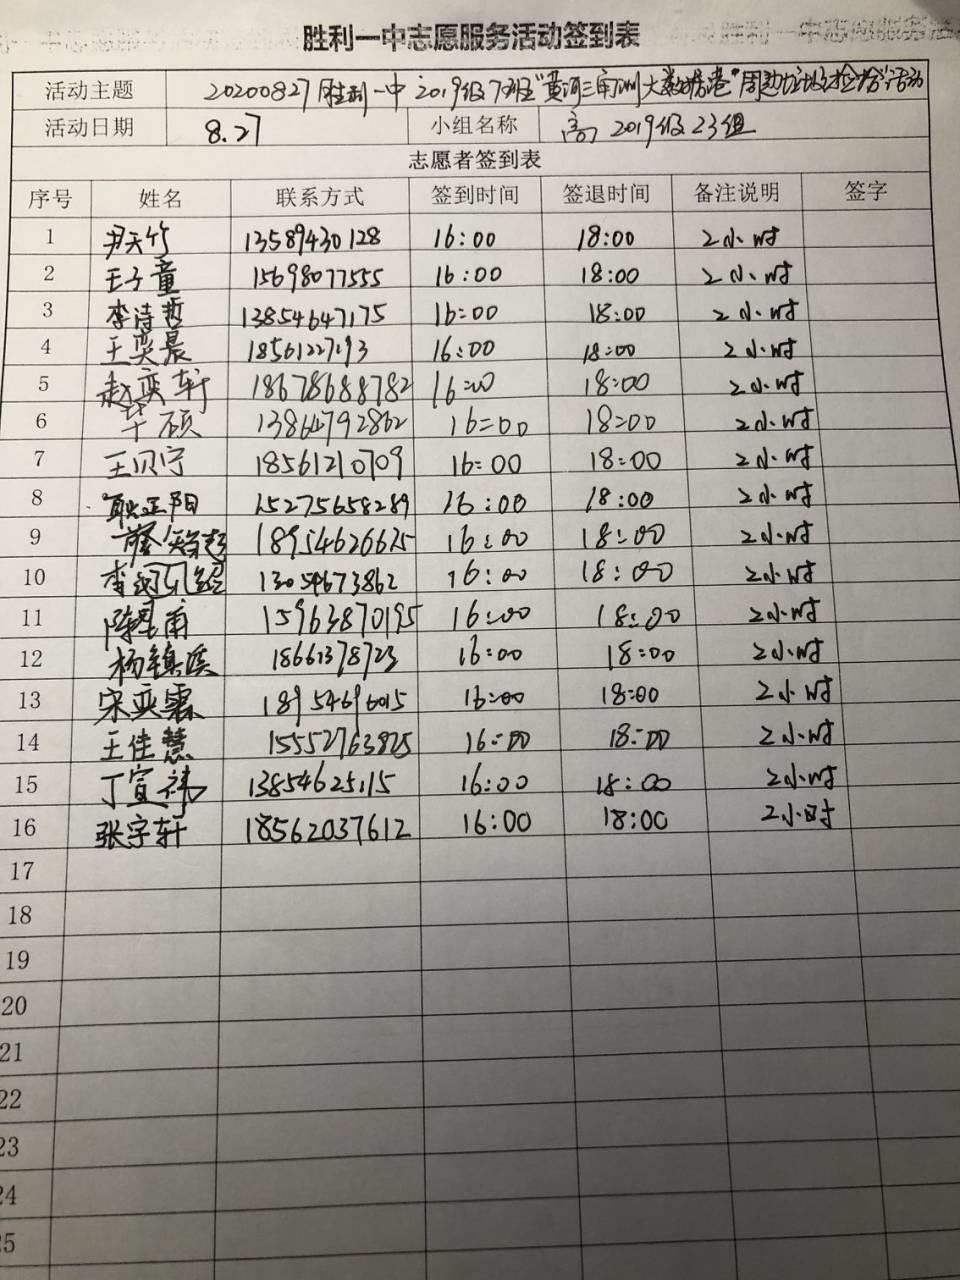 胜利一中志愿服务活动签到表
活动主题 20200827胜利一中2019级7班"黄河三角洲大数据港"周边垃圾捡拾活动
活动日期 8.27 小组名称 高2019级23组
志愿者签到表
序号 姓名 联系方式 签到时间 签退时间 备注说明 签字
1 尹天竹 13589430128 16:00 18:00 2小时
2 王子童 15698077555 16:00 18:00 2小时
3 李诗哲 13854647175 16:00 18:00 2小时
4 王奕晨 16:00 18:00 2小时
5 赵奕轩 18678688782 16:00 18:00 2小时
6 华硕 13864792862 16:00 18:00 2小时
7 王贝宁 18561210709 16:00 18:00 2小时
8 耿正阳 15275658289 16:00 18:00 2小时
9 18954626625 16:00 18:00 2小时
10 13054673862 16:00 18:00 2小时
11 陈星甫 15963870195 16:00 18:00 2小时
12 杨镇溪 18661378723 16:00 18:00 2小时
13 宋亚霖 18954696015 16:00 18:00 2小时
14 王佳慧 15552763825 16:00 18:00 2小时
15 丁宣祎 13854625115 16:00 18:00 2小时
16 张宇轩 18562037612 16:00 18:00 2小时
17
18
19
20
21
22
23
24
25